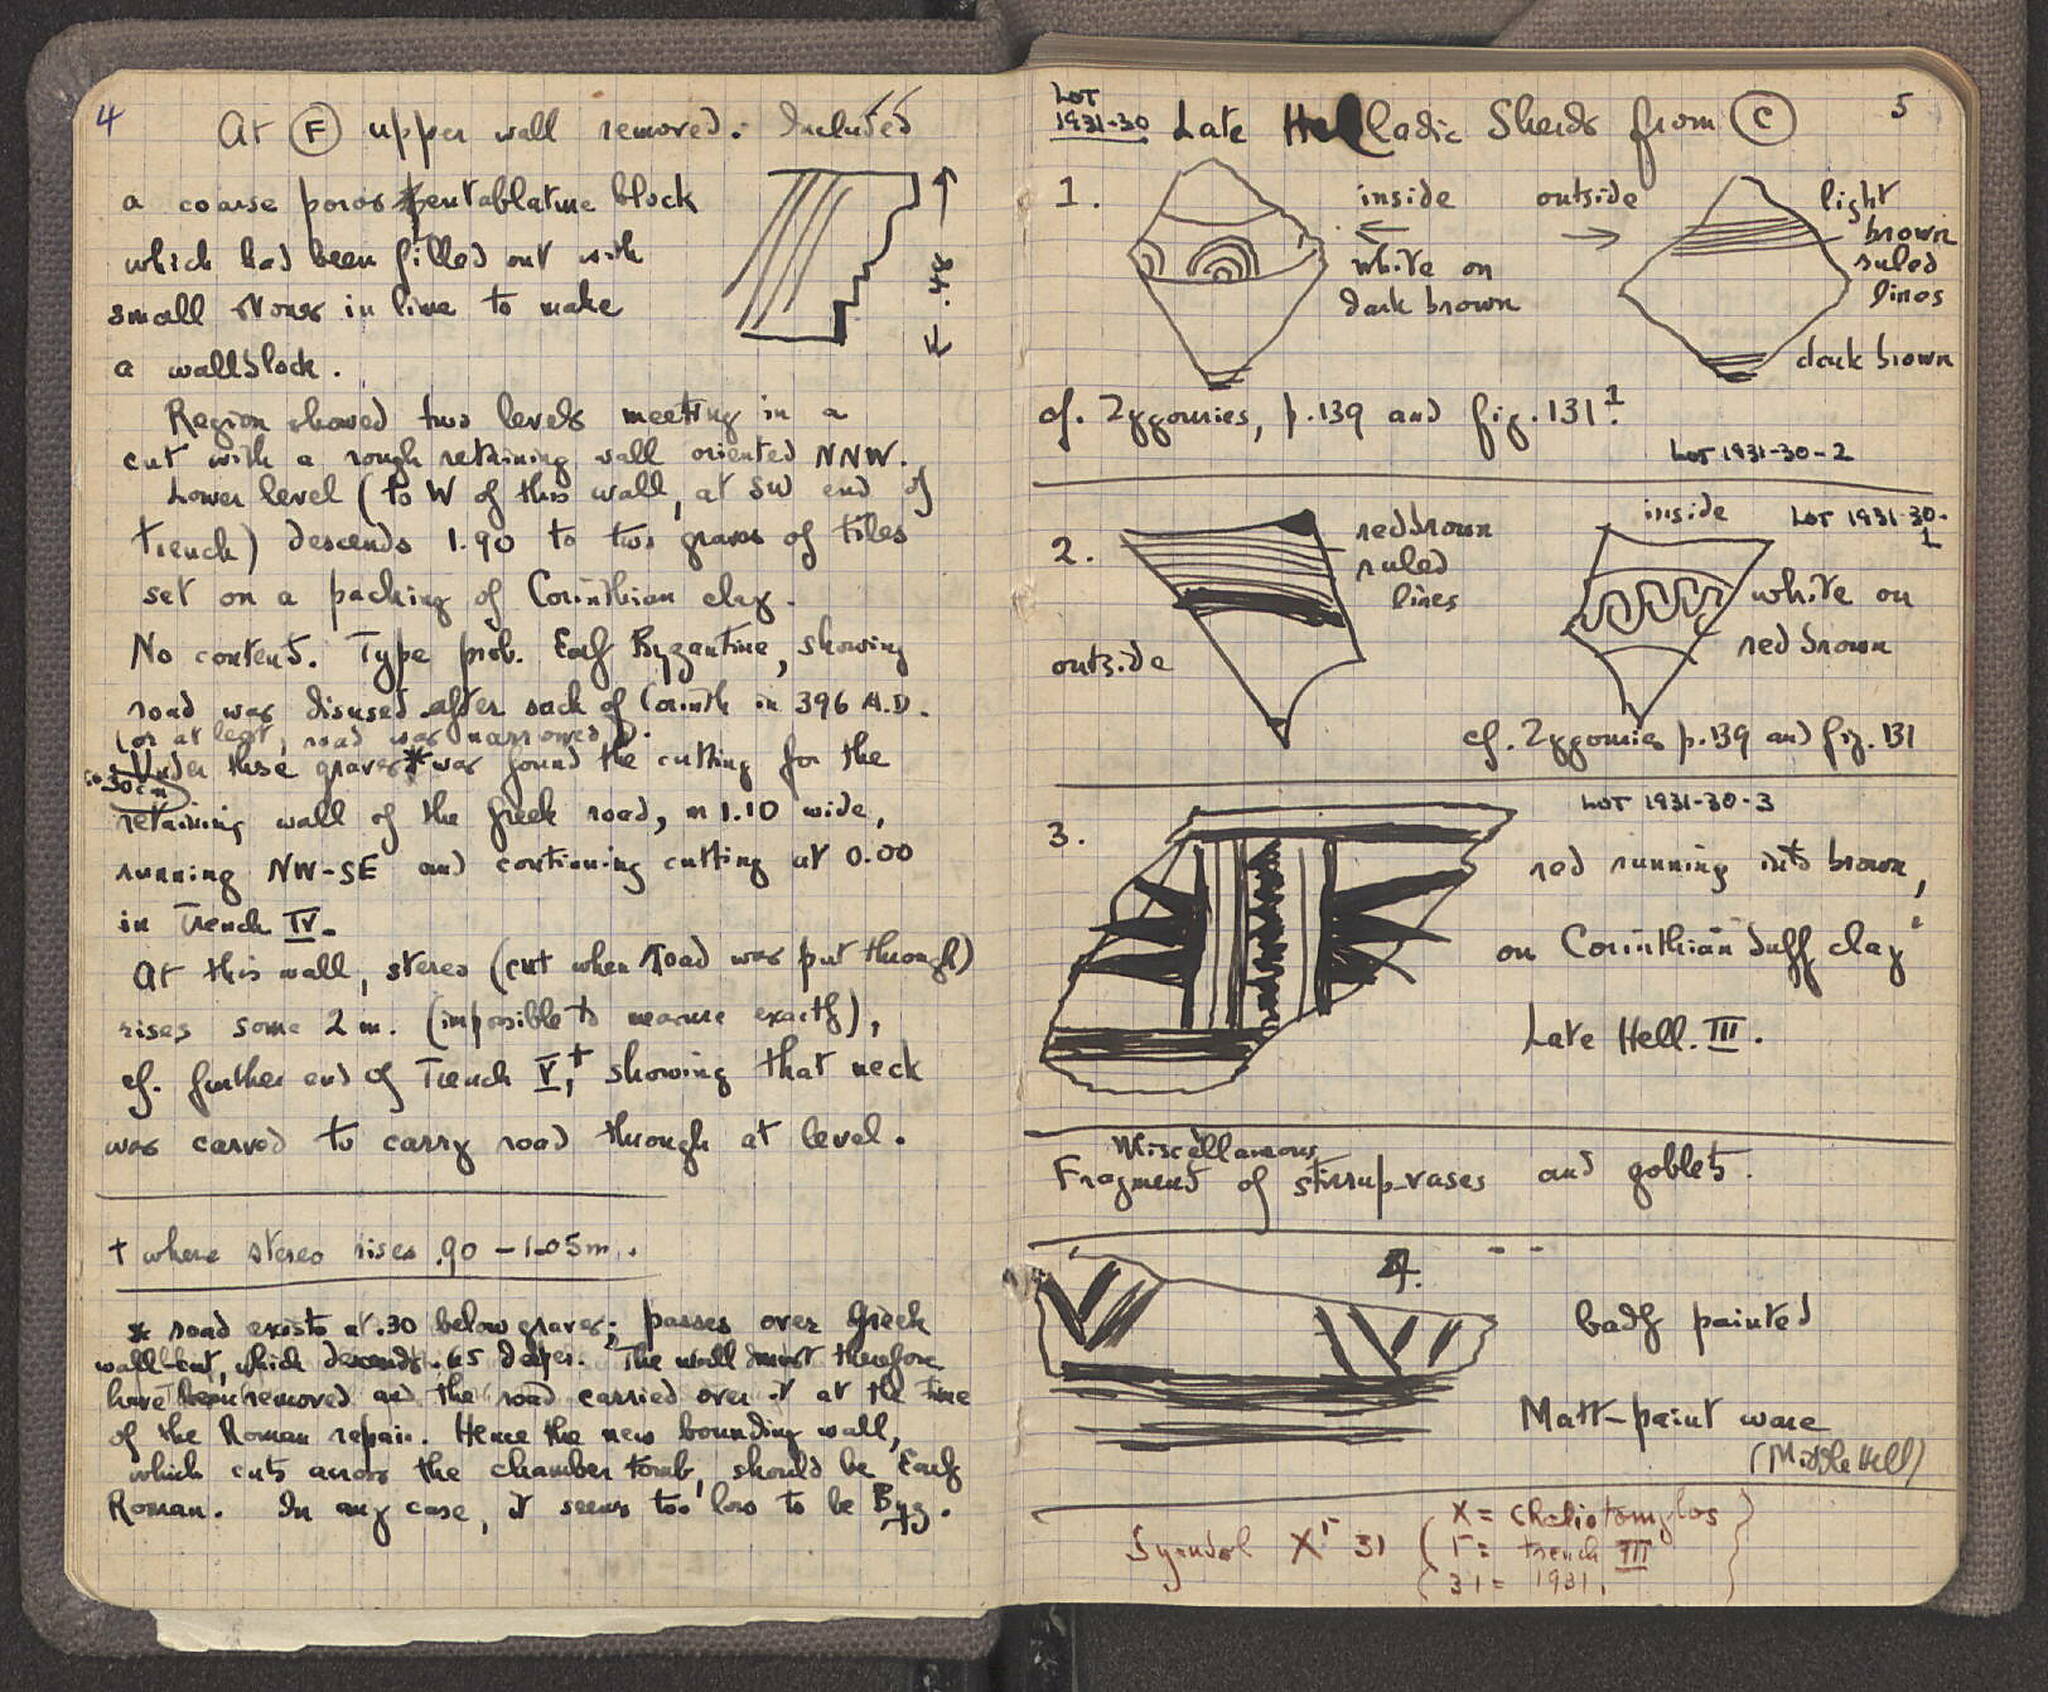 4
At (F) upper wall removed. Included
a coarse poros entablature block
which had been filled out with
small stones in lime to make
a wallblock.
.48
Region showed two levels meeting in a
cut with a rough retaining wall oriented NNW.
Lower level (to W of this wall, at SW end of
trench) descends 1.90 to two graves of tiles
set on a packing of Corinthian clay.
No content. Type prob. Early Byzantine, showing
road was disused after sack of Corinth in 396 A.D.
(or at least, road was narrowed).
Under these graves* was found the cutting for the
30cm
retaining wall of the Greek road, m 1.10 wide,
running NW-SE and continuing cutting at 0.00
in Trench IV.
At this wall, stereo (cut when road was put through)
rises some 2 m. (impossible to measure exactly),
cf. further end of Trench V,† showing that neck
was carved to carry road through at level.
† where stereo rises .90 – 1.05m.
* road exists at .30 below graves; passes over Greek
wall-cut, which descends .65 deeper. The wall must therefore
have been removed and the road carried over it at the time
of the Roman repair. Hence the new bounding wall,
which cuts across the chamber tomb, should be Early
Roman. In any case, it seems too low to be Byz.
5
LOT
1931-30
Late Helladic Sherds from (C)
1.
inside
←
white on
dark brown
outside
→
light
brown
ruled
lines
dark brown
cf. Zygouries, p.139 and fig. 131¹.
LOT 1931-30-2
2.
outside
redbrown
ruled
lines
inside
LOT 1931-30-
1
white on
red brown
cf. Zygouries p.139 and fig. 131
LOT 1931-30-3
3.
red running into brown,
on Corinthian buff clay
Late Hell. III.
Miscellaneous
Fragments of stirrup-vases and goblets.
4.
badly painted
Matt-paint ware
(Middle Hell)
Symbol XΓ 31
X = Cheliotomylos
Γ = trench III
31 = 1931.